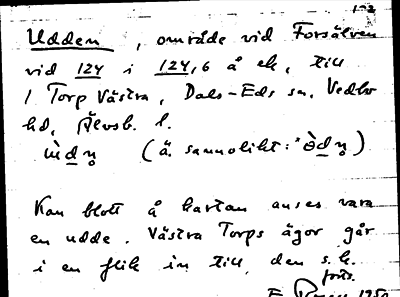 Udden, område vid Forsälven
vid 124 i 124,6 å ek, till
1 Torp Västra, Dals-Eds sn, Vedbo
hd, Älvsb. l.
(ä. sannolikt:
Kan blott å kartan anses vara
en udde. Västra Torps ägor går
i en flik in till den s.k.
forts.
1950